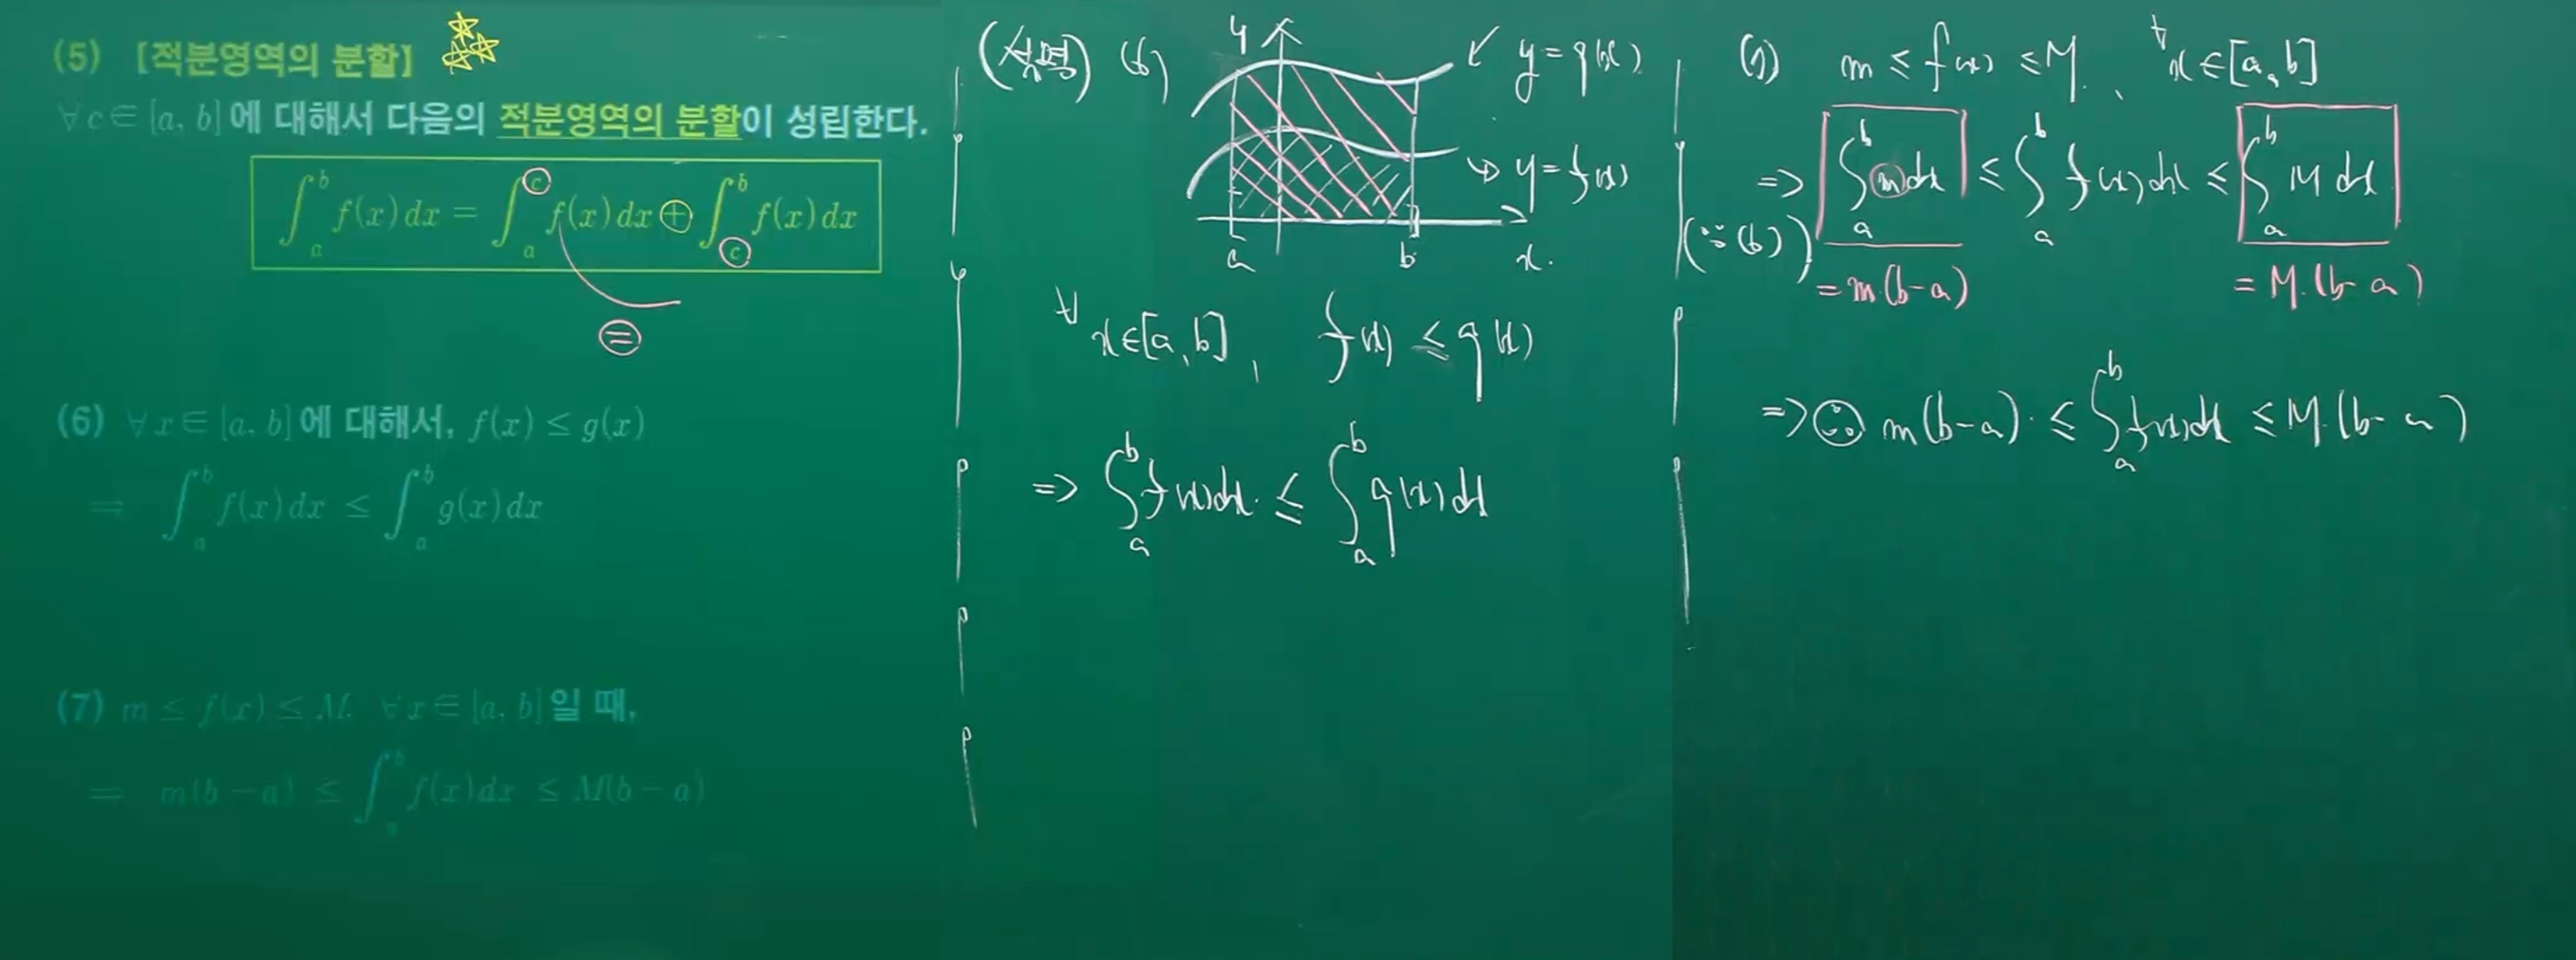 (5) [적분영역의 분할]
∀c∈[a, b]에 대해서 다음의 적분영역의 분할이 성립한다.
∫_a^b f(x)dx = ∫_a^c f(x)dx + ∫_c^b f(x)dx
=
(6) ∀x∈[a, b]에 대해서, f(x) ≤ g(x)
⇒ ∫_a^b f(x)dx ≤ ∫_a^b g(x)dx
(7) m ≤ f(x) ≤ M, ∀x∈[a, b]일 때,
⇒ m(b-a) ≤ ∫_a^b f(x)dx ≤ M(b-a)
(설명) (6)
y
y=g(x)
y=f(x)
a b x
∀x∈[a, b], f(x) ≤ g(x)
⇒ ∫_a^b f(x)dx ≤ ∫_a^b g(x)dx
(7) m ≤ f(x) ≤ M, ∀x∈[a, b]
⇒ ∫_a^b m dx ≤ ∫_a^b f(x)dx ≤ ∫_a^b M dx
(∵(6))
=m(b-a) =M(b-a)
⇒ ∴ m(b-a) ≤ ∫_a^b f(x)dx ≤ M(b-a)